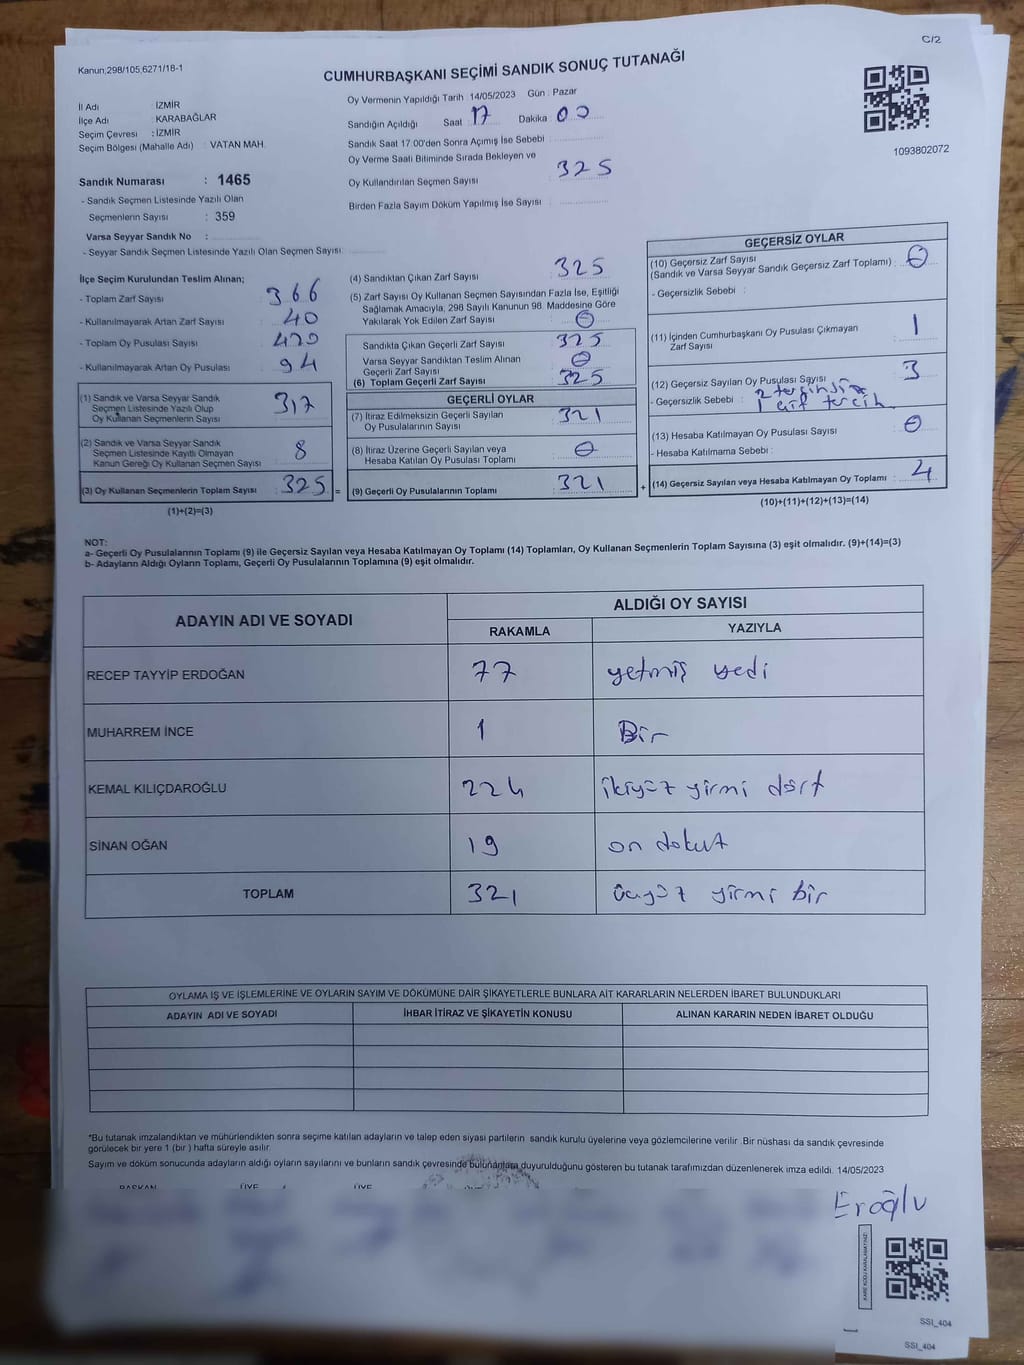 C/2
Kanun,298/105,6271/18-1
CUMHURBAŞKANI SEÇİMİ SANDIK SONUÇ TUTANAĞI
İl Adı İZMİR
İlçe Adı KARABAĞLAR
Seçim Çevresi : İZMİR
Seçim Bölgesi (Mahalle Adı) : VATAN MAH.
Sandık Numarası : 1465
- Sandık Seçmen Listesinde Yazılı Olan
Seçmenlerin Sayısı : 359
Varsa Seyyar Sandık No :
- Seyyar Sandık Seçmen Listesinde Yazılı Olan Seçmen Sayısı:
Oy Vermenin Yapıldığı Tarih 14/05/2023 Gün : Pazar
Sandığın Açıldığı Saat : 17 Dakika : 00
Sandık Saat 17.00'den Sonra Açımış İse Sebebi :
Oy Verme Saati Bitiminde Sırada Bekleyen ve
Oy Kullandırılan Seçmen Sayısı : 325
Birden Fazla Sayım Döküm Yapılmış İse Sayısı :
1093802072
İlçe Seçim Kurulundan Teslim Alınan;
- Toplam Zarf Sayısı : 366
- Kullanılmayarak Artan Zarf Sayısı : 40
- Toplam Oy Pusulası Sayısı : 420
- Kullanılmayarak Artan Oy Pusulası : 94
(1) Sandık ve Varsa Seyyar Sandık
Seçmen Listesinde Yazılı Olup
Oy Kullanan Seçmenlerin Sayısı : 317
(2) Sandık ve Varsa Seyyar Sandık
Seçmen Listesinde Kayıtlı Olmayan
Kanun Gereği Oy Kullanan Seçmen Sayısı : 8
(3) Oy Kullanan Seçmenlerin Toplam Sayısı : 325 =
(1)+(2)=(3)
(4) Sandıktan Çıkan Zarf Sayısı : 325
(5) Zarf Sayısı Oy Kullanan Seçmen Sayısından Fazla İse, Eşitliği
Sağlamak Amacıyla, 298 Sayılı Kanunun 98. Maddesine Göre
Yakılarak Yok Edilen Zarf Sayısı : 0
Sandıkta Çıkan Geçerli Zarf Sayısı : 325
Varsa Seyyar Sandıktan Teslim Alınan
Geçerli Zarf Sayısı : 0
(6) Toplam Geçerli Zarf Sayısı : 325
GEÇERLİ OYLAR
(7) İtiraz Edilmeksizin Geçerli Sayılan
Oy Pusulalarının Sayısı : 321
(8) İtiraz Üzerine Geçerli Sayılan veya
Hesaba Katılan Oy Pusulası Toplamı : 0
(9) Geçerli Oy Pusulalarının Toplamı : 321 +
GEÇERSİZ OYLAR
(10) Geçersiz Zarf Sayısı
(Sandık ve Varsa Seyyar Sandık Geçersiz Zarf Toplamı) : 0
- Geçersizlik Sebebi :
(11) İçinden Cumhurbaşkanı Oy Pusulası Çıkmayan
Zarf Sayısı : 1
(12) Geçersiz Sayılan Oy Pusulası Sayısı : 3
- Geçersizlik Sebebi : 2 tercihsiz
1 çift tercih
(13) Hesaba Katılmayan Oy Pusulası Sayısı : 0
- Hesaba Katılmama Sebebi :
(14) Geçersiz Sayılan veya Hesaba Katılmayan Oy Toplamı : 4
(10)+(11)+(12)+(13)=(14)
NOT:
a- Geçerli Oy Pusulalarının Toplamı (9) ile Geçersiz Sayılan veya Hesaba Katılmayan Oy Toplamı (14) Toplamları, Oy Kullanan Seçmenlerin Toplam Sayısına (3) eşit olmalıdır. (9)+(14)=(3)
b- Adayların Aldığı Oyların Toplamı, Geçerli Oy Pusulalarının Toplamına (9) eşit olmalıdır.
ADAYIN ADI VE SOYADI ALDIĞI OY SAYISI
RAKAMLA YAZIYLA
RECEP TAYYİP ERDOĞAN 77 yetmiş yedi
MUHARREM İNCE 1 Bir
KEMAL KILIÇDAROĞLU 224 ikiyüz yirmi dört
SİNAN OĞAN 19 on dokuz
TOPLAM 321 üçyüz yirmi bir
OYLAMA İŞ VE İŞLEMLERİNE VE OYLARIN SAYIM VE DÖKÜMÜNE DAİR ŞİKAYETLERLE BUNLARA AİT KARARLARIN NELERDEN İBARET BULUNDUKLARI
ADAYIN ADI VE SOYADI İHBAR İTİRAZ VE ŞİKAYETİN KONUSU ALINAN KARARIN NEDEN İBARET OLDUĞU
*Bu tutanak imzalandıktan ve mühürlendikten sonra seçime katılan adayların ve talep eden siyasi partilerin sandık kurulu üyelerine veya gözlemcilerine verilir .Bir nüshası da sandık çevresinde
görülecek bir yere 1 (bir ) hafta süreyle asılır.
Sayım ve döküm sonucunda adayların aldığı oyların sayılarını ve bunların sandık çevresinde bulunanlara duyurulduğunu gösteren bu tutanak tarafımızdan düzenlenerek imza edildi. 14/05/2023
BAŞKAN ÜYE ÜYE
Eroğlu
KARE KODU KARALAMAYINIZ!
SSI_404
SSI_404